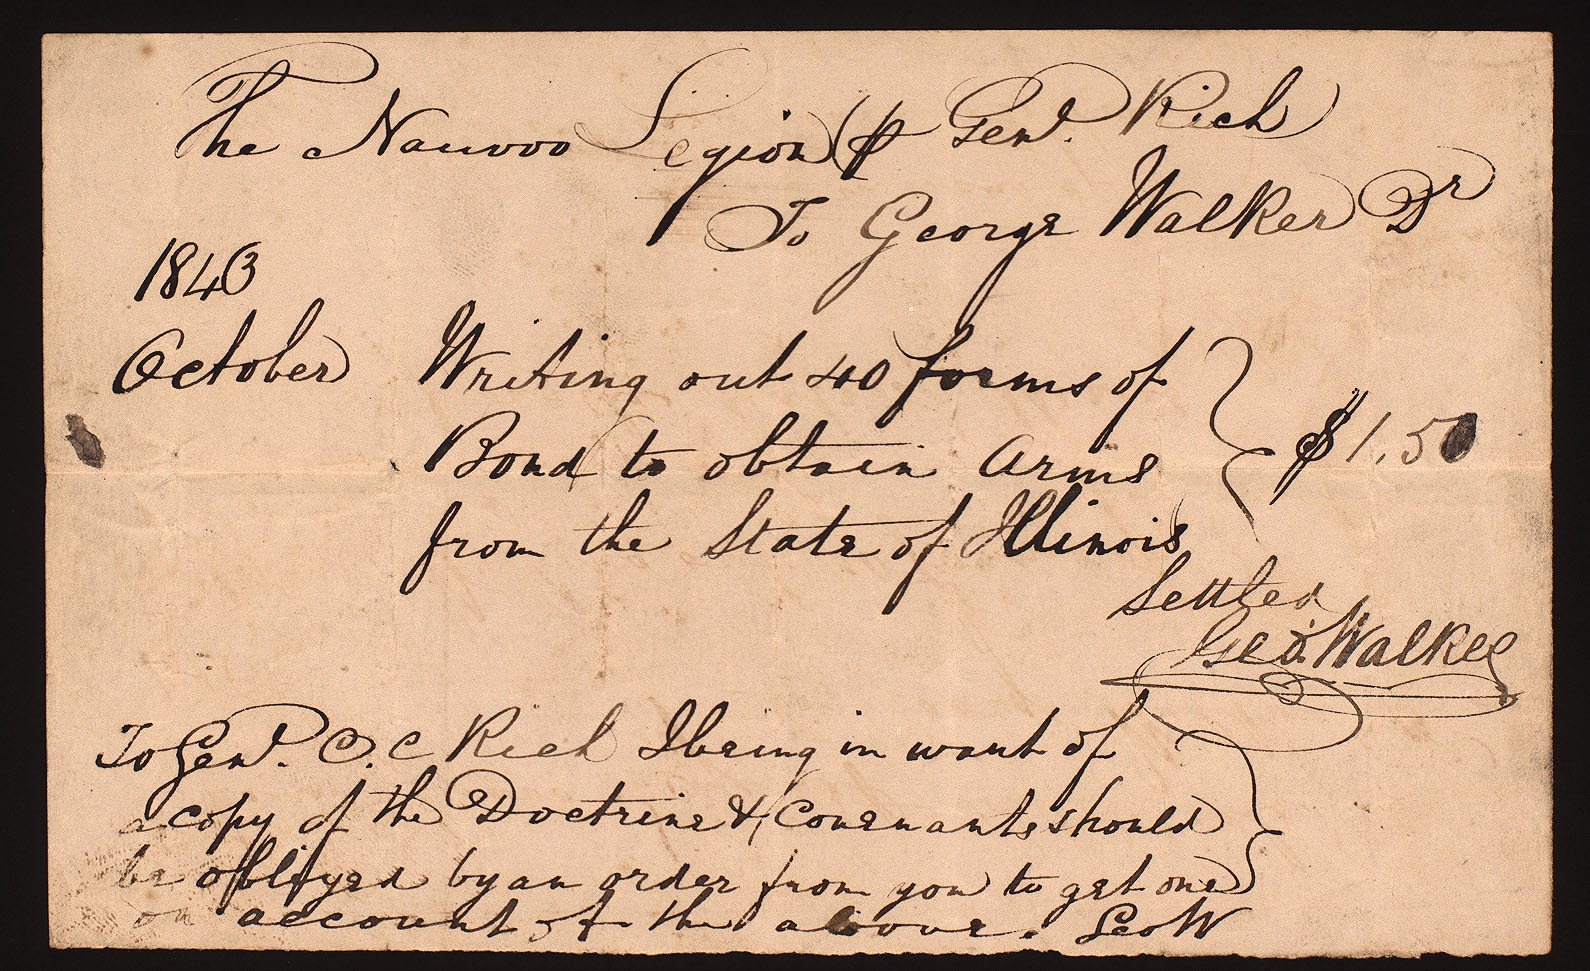 The Nauvoo Legion (℔ Genl. Rich)
To George Walker Dr
1843
October Writing out 40 forms of
Bond to obtain Arms
from the State of Illinois
$1.50
Settled
Geo. Walker
To Genl. C. C Rich I being in want of
a copy of the Doctrine & Covenants should
be obbliged by an order from you to get one
on account of the above. Geo W